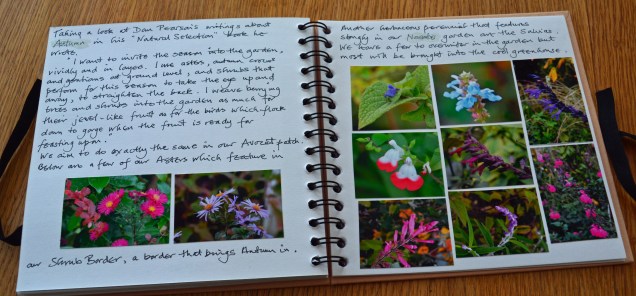 Taking a look at Dan Pearson's writings about
Autumn in his "Natural Selection" book he
wrote,
"I want to invite the season into the garden,
vividly and in layers. I use asters, autumn crocus
and gentians at ground level, and shrubs that
perform for this season to take the eye up and
away, to straighten the back. I weave berrying
trees and shrubs into the garden as much for
their jewel-like fruit as for the birds which flock
down to gorge when the fruit is ready for
feasting upon.
We aim to do exactly the same in our Avocet patch.
Below are a few of our Asters which feature in
our Shrub Border, a border that brings Autumn in.
Another herbaceous perennial that features
strongly in our garden are the Salvias.
We leave a few to overwinter in the garden but
most will be brought into the cool greenhouse.